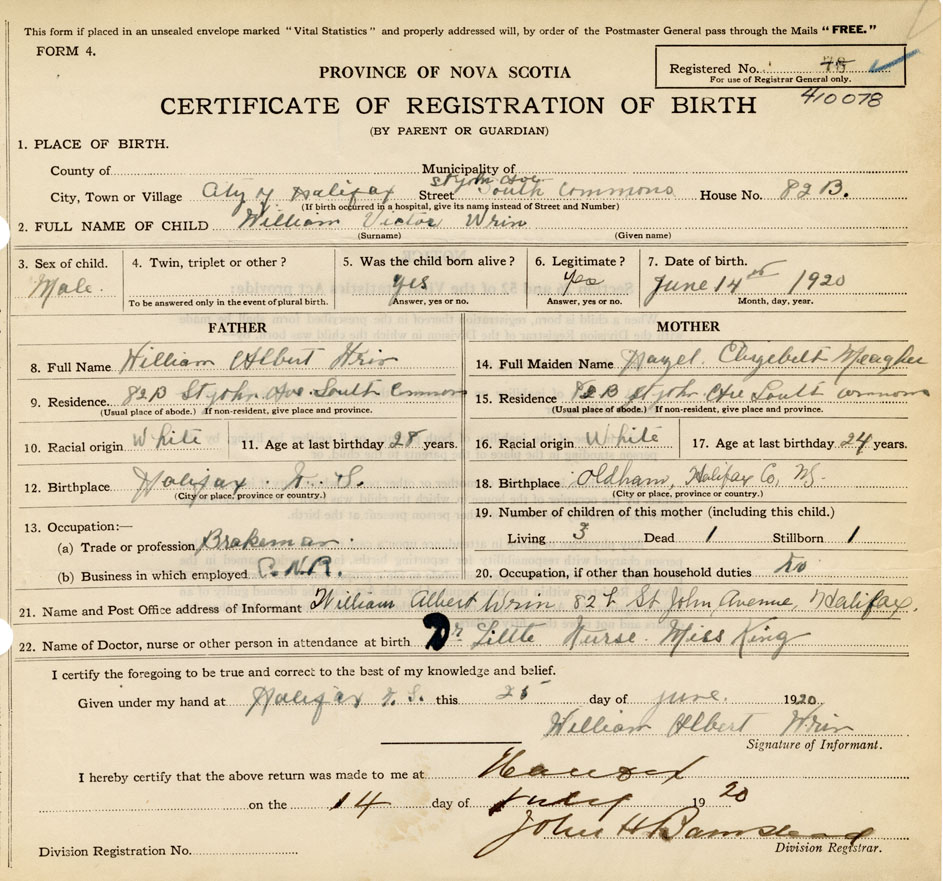 This form if placed in an unsealed envelope marked "Vital Statistics" and properly addressed will, by order of the Postmaster General pass through the Mails "FREE."
FORM 4.
Registered No. 78
For use of Registrar General only.
410078
PROVINCE OF NOVA SCOTIA
CERTIFICATE OF REGISTRATION OF BIRTH
(BY PARENT OR GUARDIAN)
1. PLACE OF BIRTH.
County of Municipality of
City, Town or Village City of Halifax Street St John Ave South Commons House No. 82 B.
(If birth occurred in a hospital, give its name instead of Street and Number)
2. FULL NAME OF CHILD William Victor Wrin
(Surname) (Given name)
3. Sex of child. Male.
4. Twin, triplet or other?
To be answered only in the event of plural birth.
5. Was the child born alive? yes
Answer, yes or no.
6. Legitimate? yes
Answer, yes or no.
7. Date of birth. June 14th 1920
Month, day, year.
FATHER
8. Full Name William Albert Wrin
9. Residence 82B St john Ave. South Commons
(Usual place of abode.) If non-resident, give place and province.
10. Racial origin White
11. Age at last birthday 28 years.
12. Birthplace Halifax. N. S.
(City or place, province or country.)
13. Occupation:—
(a) Trade or profession Brakeman.
(b) Business in which employed C.N.R.
MOTHER
14. Full Maiden Name Hazel. Meagher
15. Residence 82B St john Ave South Commons
(Usual place of abode.) If non-resident, give place and province.
16. Racial origin White
17. Age at last birthday 24 years.
18. Birthplace Oldham, Halifax Co, N.S.
(City or place, province or country.)
19. Number of children of this mother (including this child.)
Living 3 Dead 1 Stillborn 1
20. Occupation, if other than household duties no
21. Name and Post Office address of Informant William Albert Wrin 82 St John Avenue, Halifax.
22. Name of Doctor, nurse or other person in attendance at birth Dr Nurse. Miss King
I certify the foregoing to be true and correct to the best of my knowledge and belief.
Given under my hand at Halifax N. S. this 25 day of june. 1920.
William Albert Wrin
Signature of Informant.
I hereby certify that the above return was made to me at
on the 14 day of July 1920
John H
Division Registration No. Division Registrar.